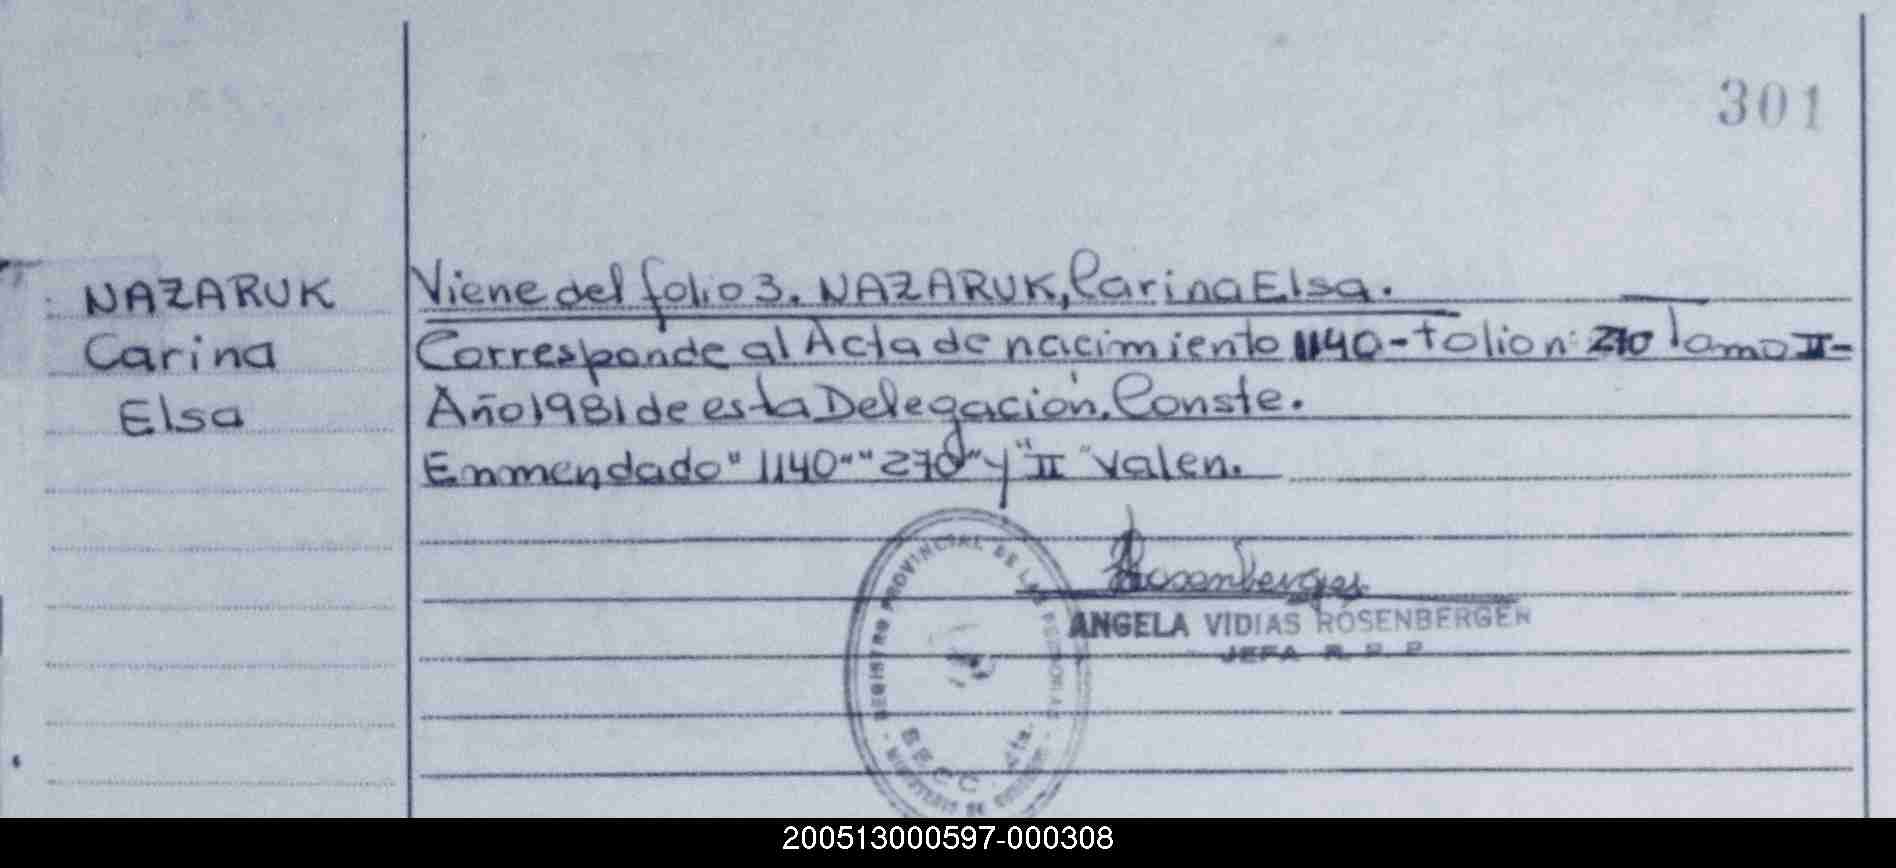 301
NAZARUK
Carina
Elsa
Viene del folio 3. NAZARUK, Carina Elsa.
Corresponde al Acta de nacimiento 1140-folio n: 270 Tomo II-
Año 1981 de esta Delegación. Conste.
Enmendado "1140" "270" y "II" valen.
Rosenberger
ANGELA VIDIAS ROSENBERGER
JEFA R. P. P
REGISTRO PROVINCIAL DE LAS PERSONAS
MINISTERIO DE GOBIERNO
200513000597-000308